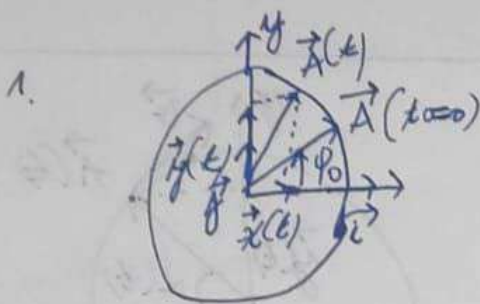 1.
y
A⃗(t)
A⃗(t₀=0)
y⃗(t)
φ₀
j⃗
x⃗(t)
i⃗